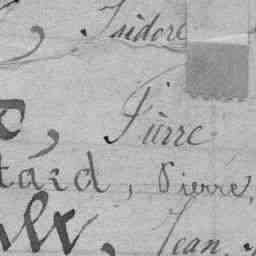 , Isidore
, Pierre
tard, Pierre,
, Jean,